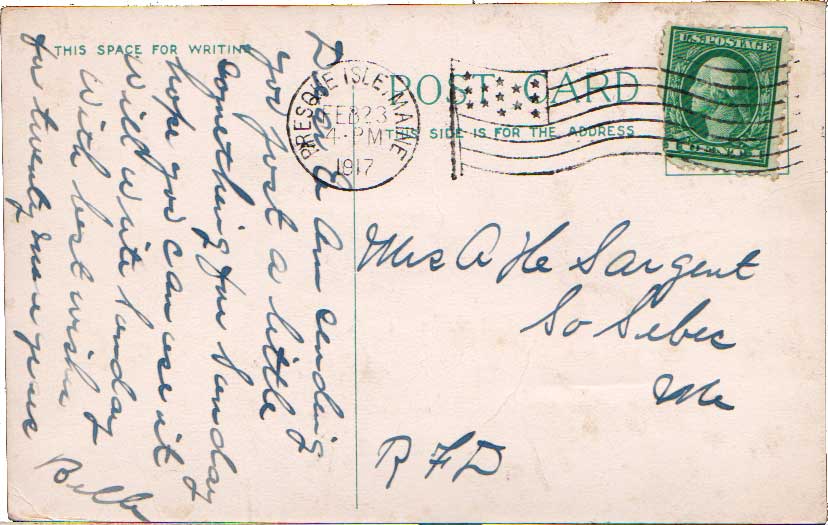 THIS SPACE FOR WRITING
POST CARD
THIS SIDE IS FOR THE ADDRESS
PRESQUE ISLE, MAINE
FEB 23
4-PM
1917
U.S. POSTAGE
1 CENT 1
Dear E Am sending
you just a little
something for Sunday
hope you can use it
will write Sunday
With best wishes
for twenty one more years
Belle
Mrs A He Sargent
So Sebec
Me
R F D